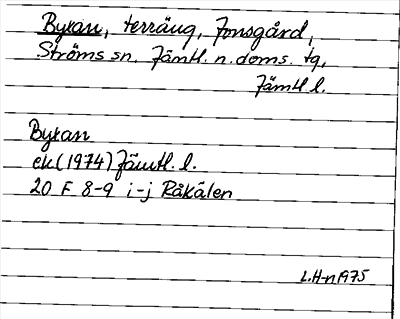 Byxan, terräng, Jonsgård,
Ströms sn. Jämtl. n. doms. tg,
Jämtl l.
Byxan
ek (1974) Jämtl. l.
20 F 8-9 i-j Råkälen
L.H-n 1975